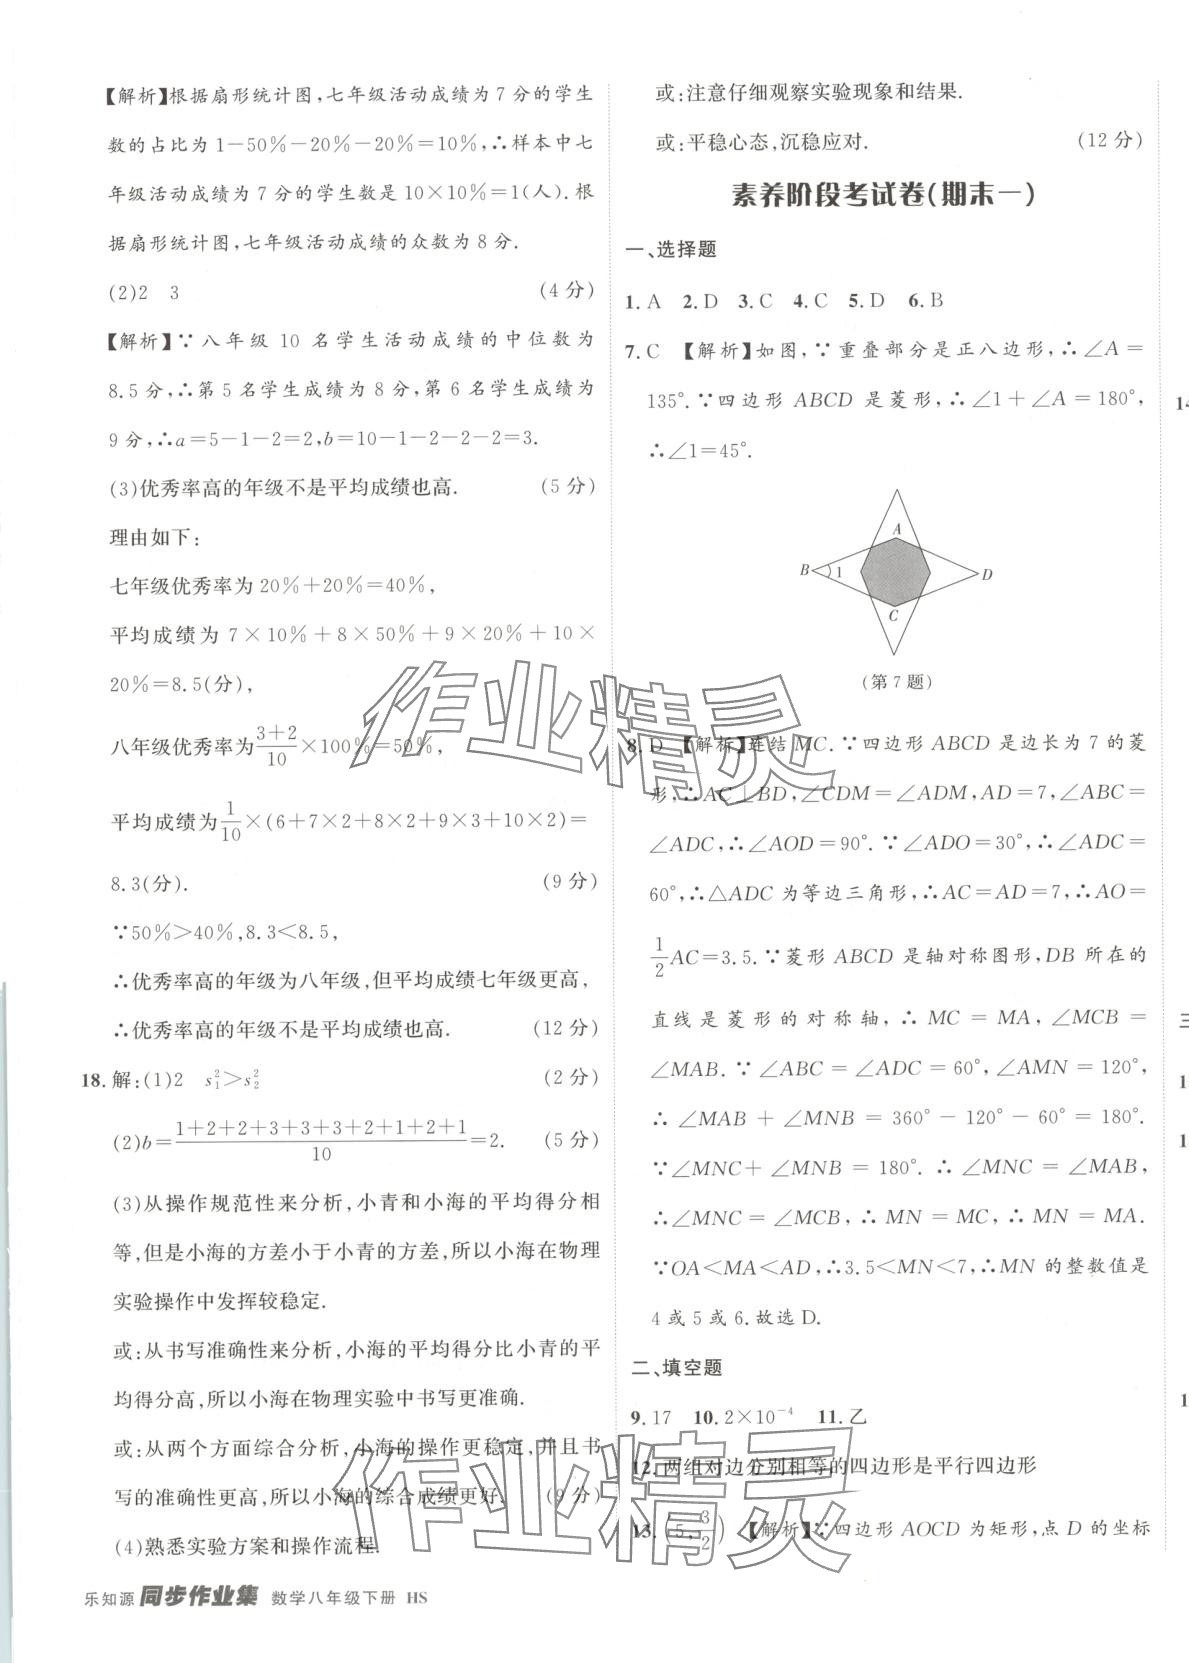 【解析】根据扇形统计图,七年级活动成绩为 7 分的学生
数的占比为 1-50%-20%-20%=10%,∴样本中七
年级活动成绩为 7 分的学生数是 10×10%=1(人). 根
据扇形统计图,七年级活动成绩的众数为 8 分.
(2)2 3 (4 分)
【解析】∵八年级 10 名学生活动成绩的中位数为
8.5 分,∴第 5 名学生成绩为 8 分,第 6 名学生成绩为
9 分,∴a=5-1-2=2,b=10-1-2-2-2=3.
(3)优秀率高的年级不是平均成绩也高. (5 分)
理由如下:
七年级优秀率为 20%+20%=40%,
平均成绩为 7×10%+8×50%+9×20%+10×
20%=8.5(分),
八年级优秀率为(3+2)/10×100%=50%,
平均成绩为1/10×(6+7×2+8×2+9×3+10×2)=
8.3(分). (9 分)
∵50%>40%,8.3<8.5,
∴优秀率高的年级为八年级,但平均成绩七年级更高,
∴优秀率高的年级不是平均成绩也高. (12 分)
18. 解:(1)2 s₁²>s₂² (2 分)
(2)b=(1+2+2+3+3+3+2+1+2+1)/10=2. (5 分)
(3)从操作规范性来分析,小青和小海的平均得分相
等,但是小海的方差小于小青的方差,所以小海在物理
实验操作中发挥较稳定.
或:从书写准确性来分析,小海的平均得分比小青的平
均得分高,所以小海在物理实验中书写更准确.
或:从两个方面综合分析,小海的操作更稳定,并且书
写的准确性更高,所以小海的综合成绩更好. (9 分)
(4)熟悉实验方案和操作流程.
或:注意仔细观察实验现象和结果.
或:平稳心态,沉稳应对. (12 分)
素养阶段考试卷(期末一)
一、选择题
1. A 2. D 3. C 4. C 5. D 6. B
7. C 【解析】如图,∵重叠部分是正八边形,∴∠A=
135°.∵四边形 ABCD 是菱形,∴∠1+∠A=180°,
∴∠1=45°.
A
B 1 D
C
(第 7 题)
8. D 【解析】连结 MC.∵四边形 ABCD 是边长为 7 的菱
形,∴AC⊥BD,∠CDM=∠ADM,AD=7,∠ABC=
∠ADC,∴∠AOD=90°.∵∠ADO=30°,∴∠ADC=
60°,∴△ADC 为等边三角形,∴AC=AD=7,∴AO=
1/2AC=3.5.∵菱形 ABCD 是轴对称图形,DB 所在的
直线是菱形的对称轴,∴MC=MA,∠MCB=
∠MAB.∵∠ABC=∠ADC=60°,∠AMN=120°,
∴∠MAB+∠MNB=360°-120°-60°=180°.
∵∠MNC+∠MNB=180°.∴∠MNC=∠MAB,
∴∠MNC=∠MCB,∴MN=MC,∴MN=MA.
∵OA<MA<AD,∴3.5<MN<7,∴MN 的整数值是
4 或 5 或 6. 故选 D.
二、填空题
9. 17 10. 2×10⁻⁴ 11. 乙
12. 两组对边分别相等的四边形是平行四边形
13. (5,3/2) 【解析】∵四边形 AOCD 为矩形,点 D 的坐标
乐知源 同步作业集 数学八年级下册 HS
作业精灵
作业精灵